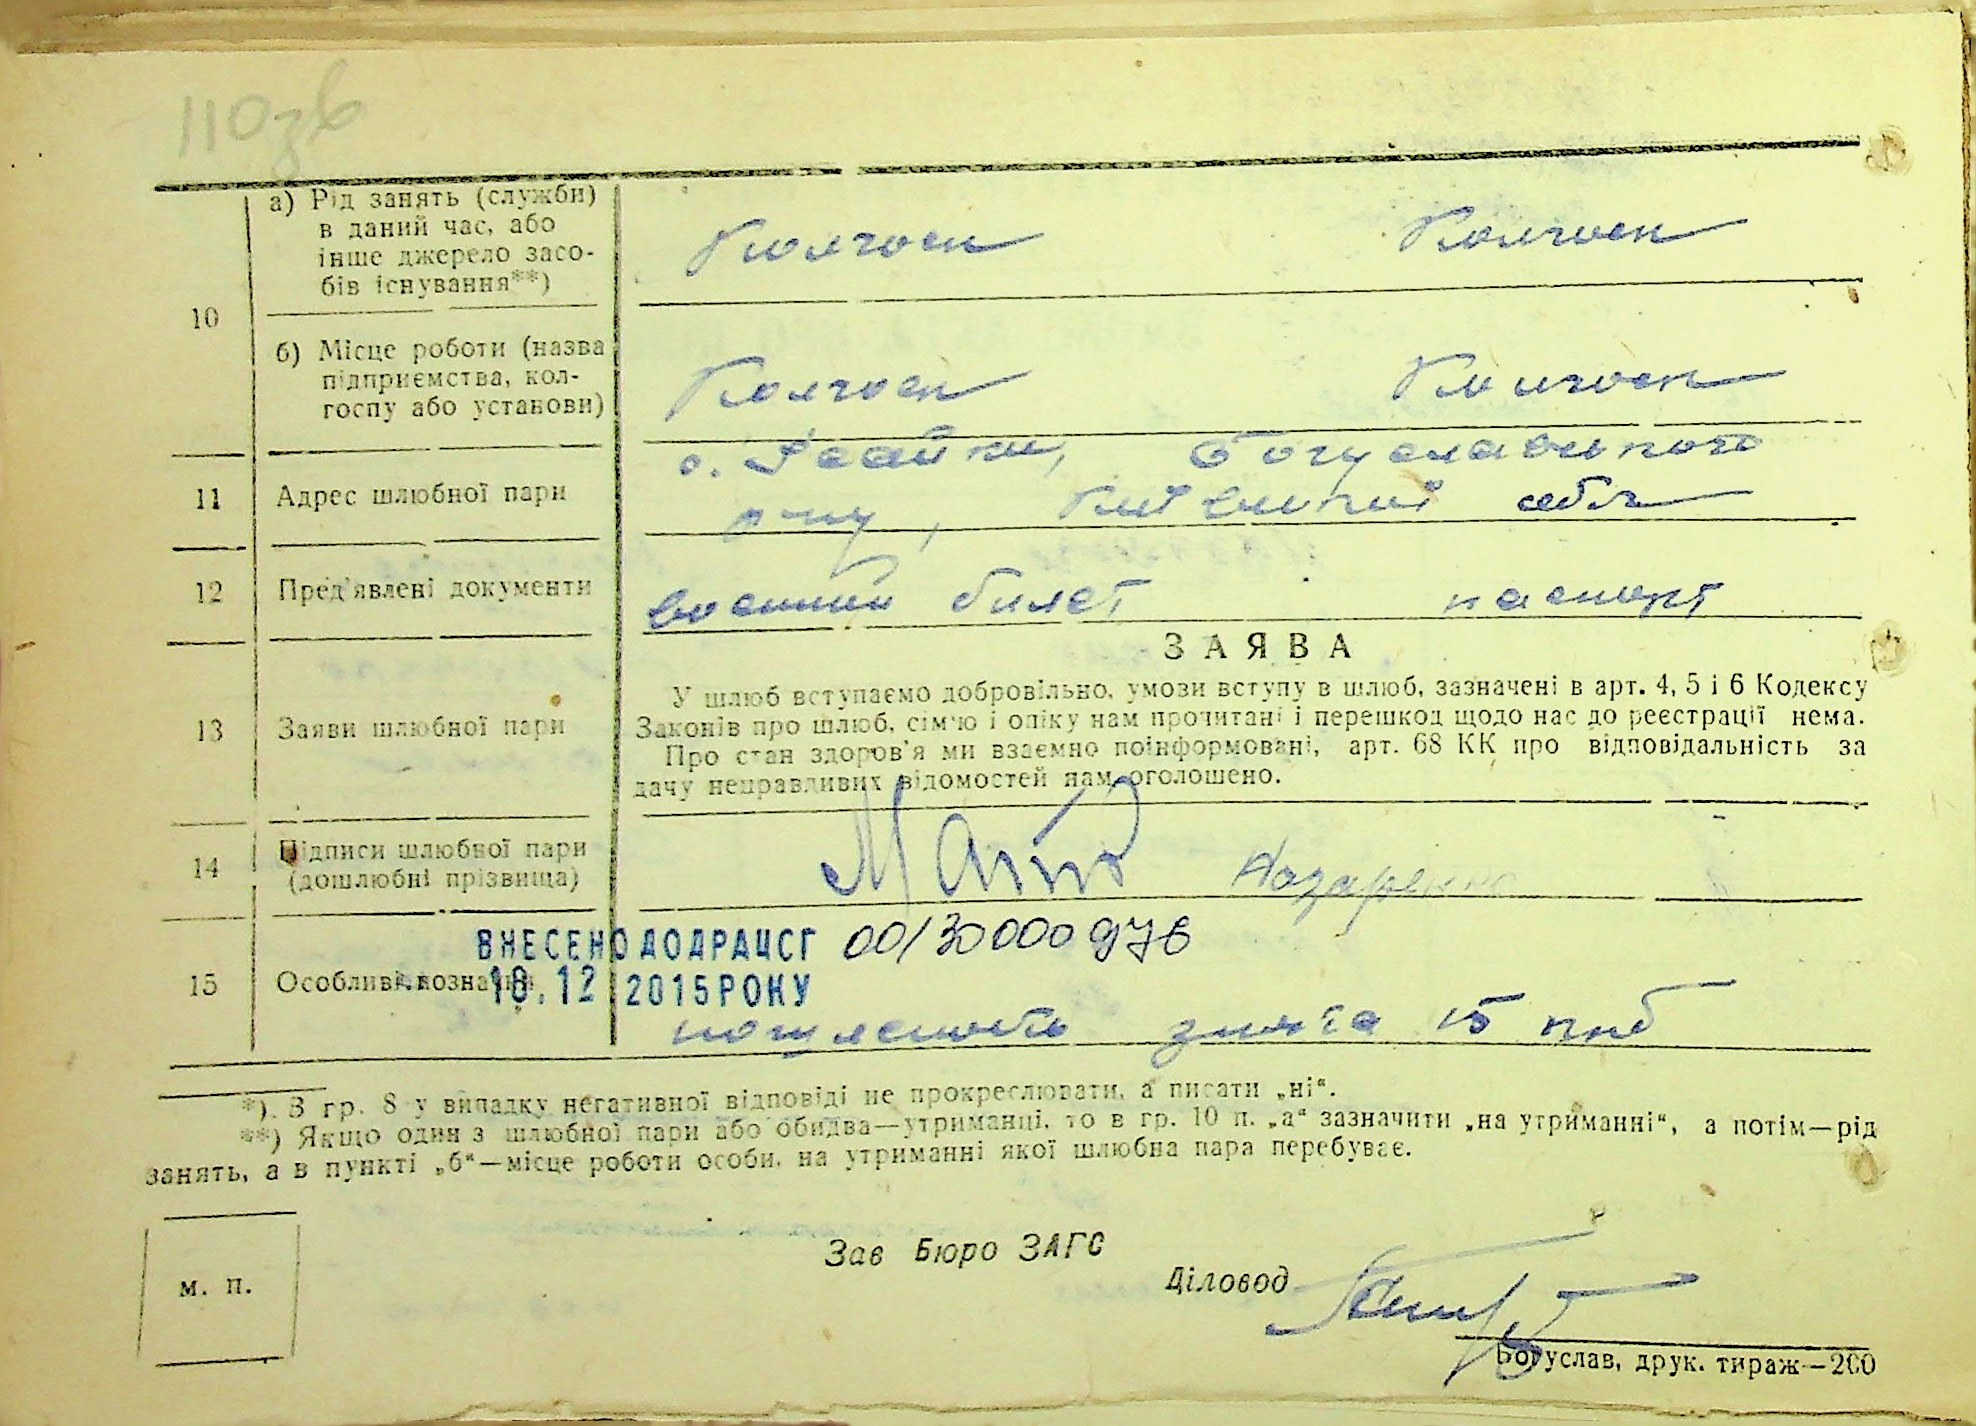 110зв
а) Рід занять (служби)
в даний час, або
інше джерело засо-
бів існування**)
Колгосп Колгосп
10
б) Місце роботи (назва
підприємства, кол-
госпу або установи)
Колгосп Колгосп
11 Адрес шлюбної пари
с. Ісайки, Богуславського
р-ну, Київської обл
12 Пред'явлені документи
военний билет паспорт
ЗАЯВА
13 Заяви шлюбної пари
У шлюб вступаємо добровільно, умови вступу в шлюб, зазначені в арт. 4, 5 і 6 Кодексу
Законів про шлюб, сім'ю і опіку нам прочитані і перешкод щодо нас до реєстрації нема.
Про стан здоров'я ми взаємно поінформовані, арт. 68 КК про відповідальність за
дачу неправдивих відомостей нам оголошено.
14 Підписи шлюбної пари
(дошлюбні прізвища)
Назаренко
ВНЕСЕНО ДО ДРАЦСГ 00130000976
15 Особливі вознаки
18.12 2015 РОКУ
знята 15 крб
*) В гр. 8 у випадку негативної відповіді не прокреслювати, а писати „ні“.
**) Якщо один з шлюбної пари або обидва—утриманці, то в гр. 10 п. „а“ зазначити „на утриманні“, а потім—рід
занять, а в пункті „б“—місце роботи особи, на утриманні якої шлюбна пара перебуває.
м. п.
Зав Бюро ЗАГС
Діловод
Богуслав, друк. тираж—200